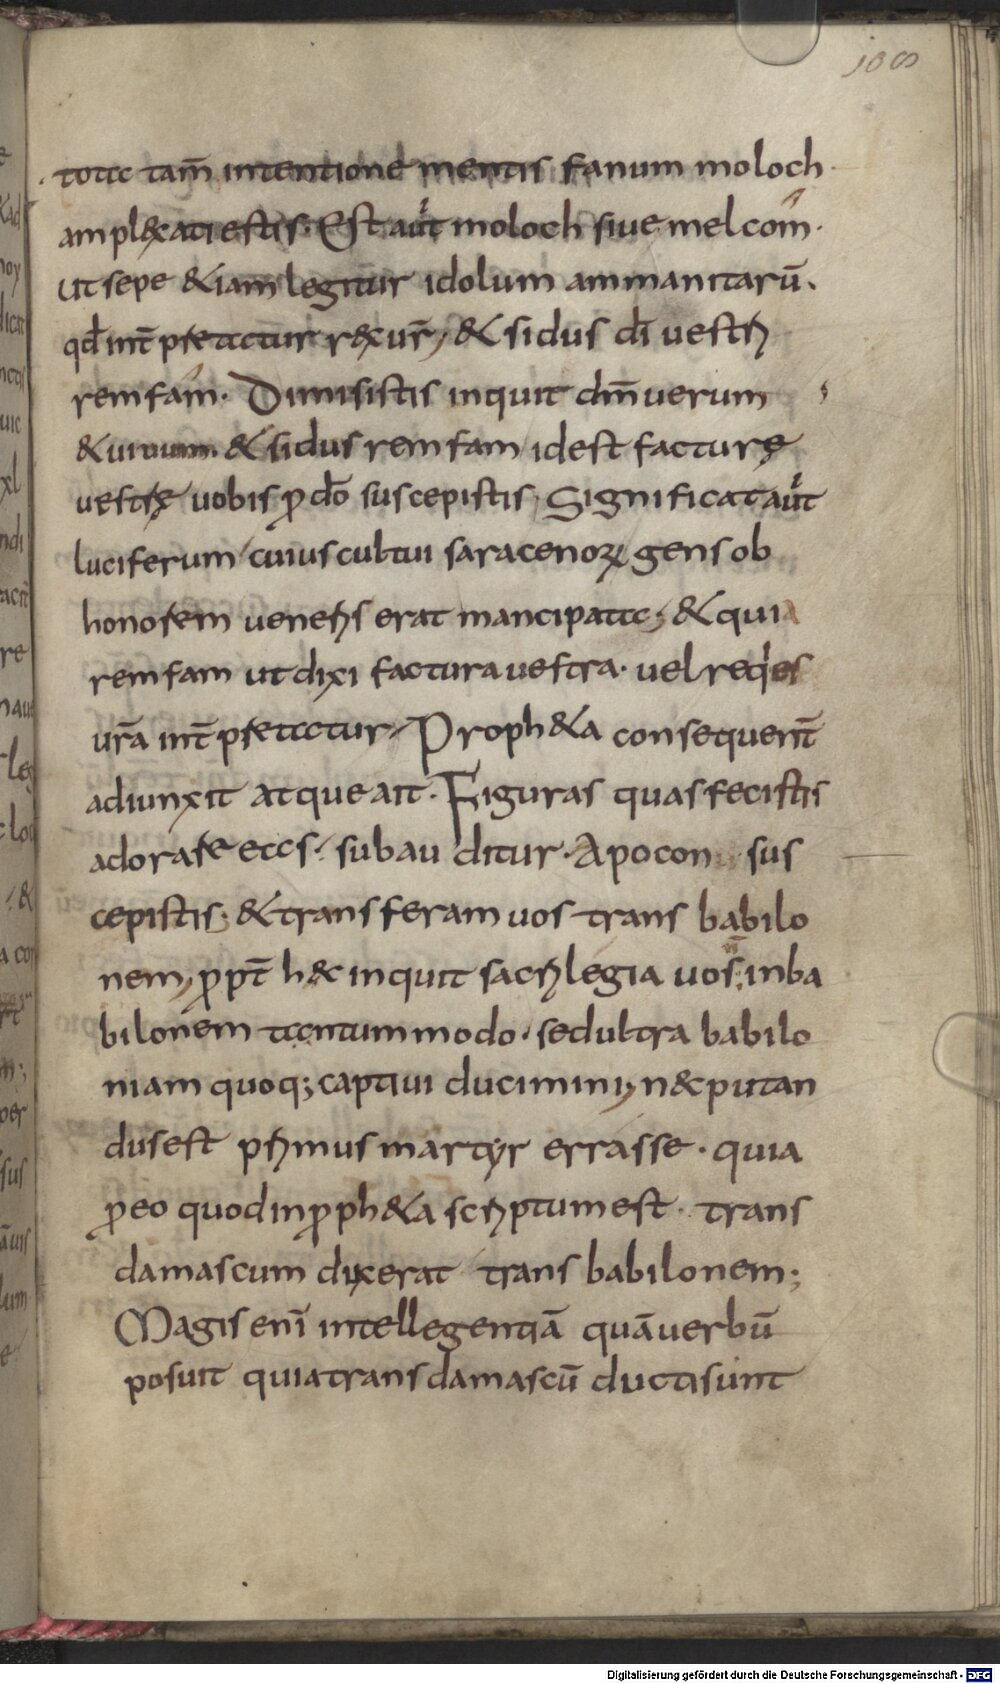 108
tota tam̄ intentione mentis fanum moloch
amplexati estis. Est aut̄ moloch siue melcom.
ut sepe &iam legitur idolum ammanitarū.
qd̄ int̄pretatur rex ur̄, & sidus di̅ uestri
remfam. Dimisistis inquit dm̄ uerum
& uiuum & sidus remfam idest facturę
uestrę uobis p̱ dō suscepistis. Significat aut̄
luciferum cuius cultui saracenoꝝ gens ob
honorem ueneris erat mancipata; & quia
remfam ut dixi factura uestra. uel requies
ur̄a int̄pretatur, Proph&a consequent̄
adiunxit atque ait. Figuras quas fecistis
adorare eas. subauditur. Apocon sus
cepistis. & transferam uos trans babilo
nem, ꝓpt̄ h&c inquit sacrilegia uos; inba
bilonem tantummodo. sed ultra babilo
niam quoq; captiui ducimini, n&c putan
dus est primus martyr errasse. quia
p̱ eo quod in ꝓph&a scriptum est. trans
damascum dixerat trans babilonem;
Magis eni̅ intellegentiā quā uerbū
posuit quia trans damascū ducti sunt
Digitalisierung gefördert durch die Deutsche Forschungsgemeinschaft - DFG